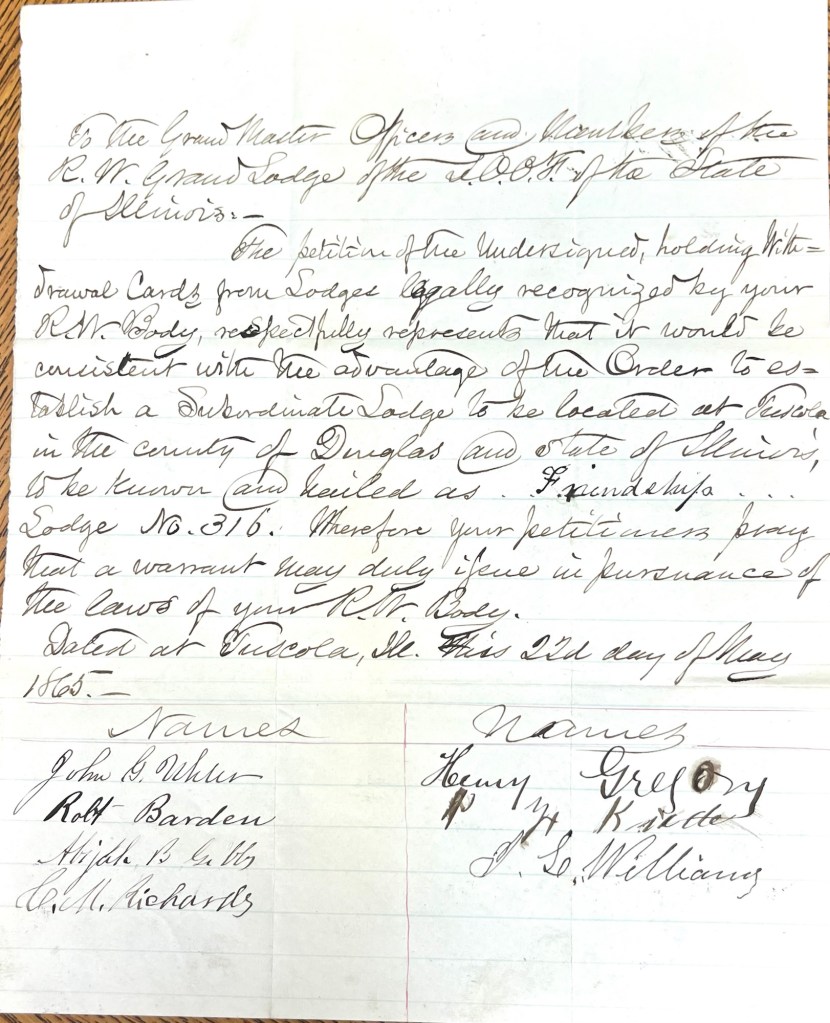 To the Grand Master Officers and Members of the
R. W. Grand Lodge of the I.O.O.F. of the State
of Illinois:—
The petition of the Undersigned, holding With=
drawal Cards from Lodges legally recognized by your
R.W. Body, respectfully represents that it would be
consistent with the advantage of the Order to es=
tablish a Subordinate Lodge to be located at Tuscola
in the county of Douglas and state of Illinois,
to be known and hailed as . Friendship . . .
Lodge No. 316. Therefore your petitioners pray
that a warrant may duly issue in pursuance of
the laws of your R.W. Body.
Dated at Tuscola, Ill. this 22d day of May
1865.—
Names
Names
John G. Uhler
Robt Barden
Abijah B Gibbs
C. M. Richards
Henry Gregory
P
L. Williams